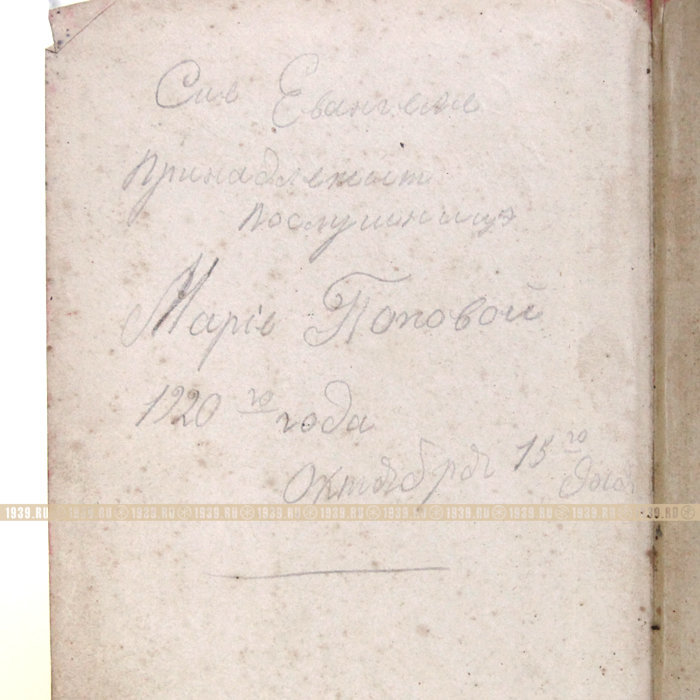 Сие Евангелие
принадлежит
послушнице
Маріе Поповой
1920 го года
Октября 15 го дня
1939.RU 1939.RU 1939.RU 1939.RU 1939.RU 1939.RU 1939.RU 1939.RU 1939.RU 1939.RU